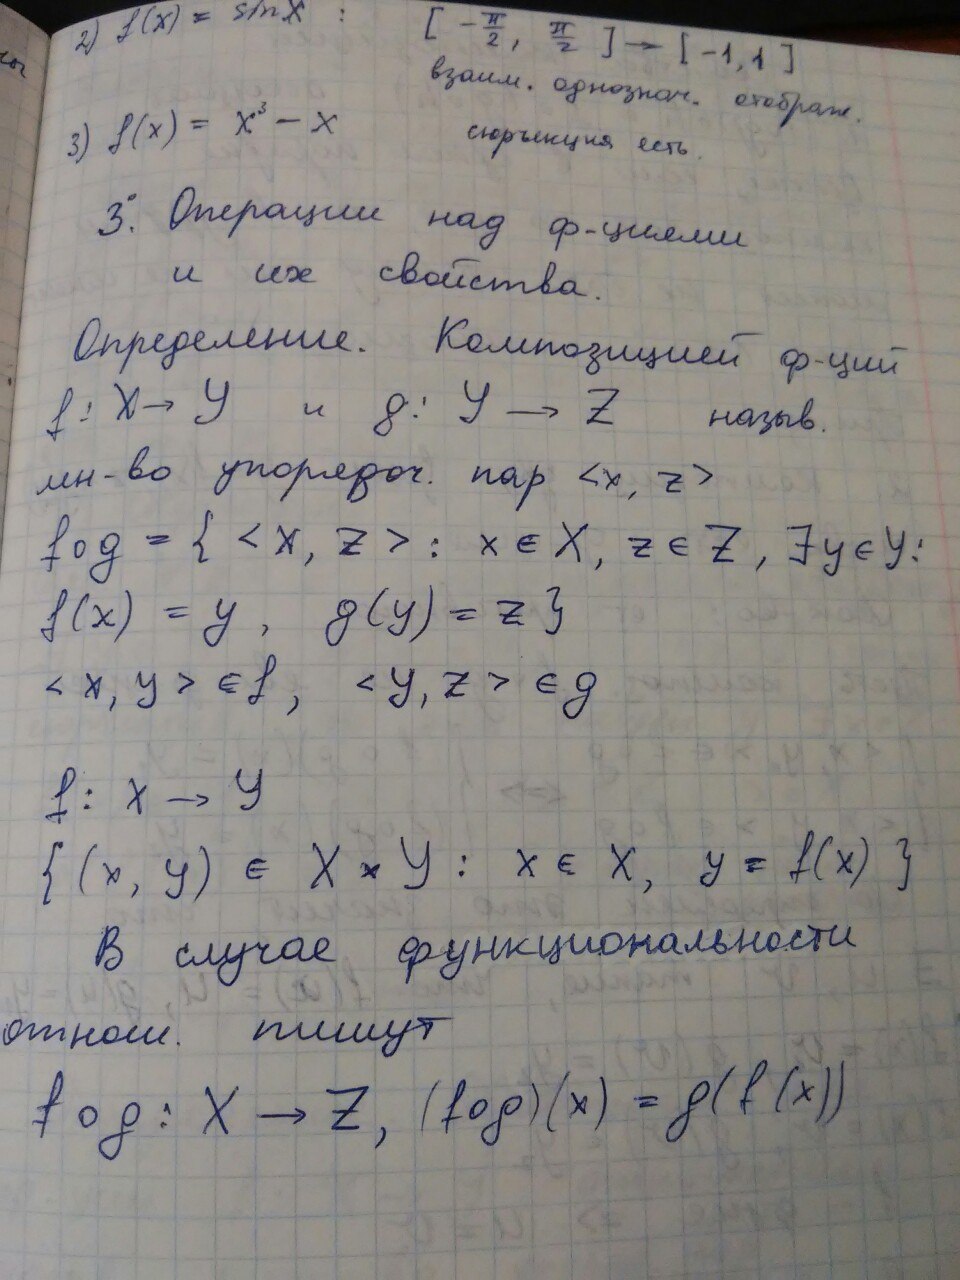 2) f(x) = sin x : [ -π/2, π/2 ] → [ -1, 1 ]
взаим. однознач. отображ.
3) f(x) = x³ - x сюръекция есть.
3°. Операции над ф-циями
и их свойства.
Определение. Композицией ф-ций
f : X → Y и g : Y → Z назыв.
мн-во упорядоч. пар <x, z>
f o g = { < x, z > : x ∈ X, z ∈ Z, ∃ y ∈ Y :
f(x) = y, g(y) = z }
< x, y > ∈ f, < y, z > ∈ g
f : X → Y
{ (x, y) ∈ X × Y : x ∈ X, y = f(x) }
В случае функциональности
отнош. пишут
f o g : X → Z, (f o g)(x) = g(f(x))